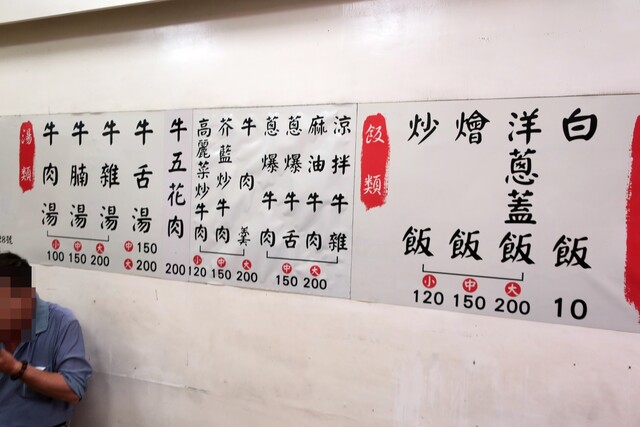 飯類
白飯 10
洋蔥蓋飯
燴飯
炒飯
小 中 大
120 150 200
涼拌牛雜
麻油牛肉
蔥爆牛舌
蔥爆牛肉
中 大
150 200
牛肉羹
芥藍炒牛肉
高麗菜炒牛肉
小 中 大
120 150 200
牛五花肉 200
牛舌湯
中 150
大 200
牛雜湯
牛腩湯
牛肉湯
小 中 大
100 150 200
湯類
28號